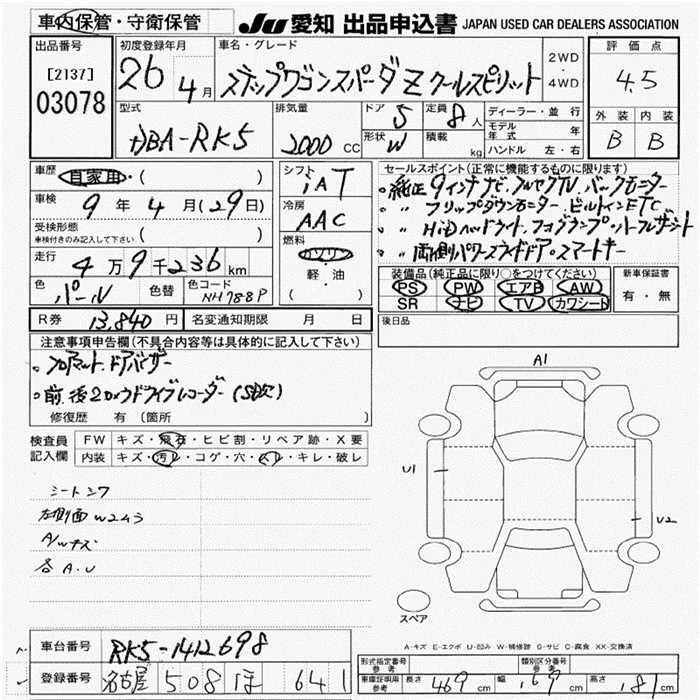 車内保管・守衛保管 JU 愛知 出品申込書 JAPAN USED CAR DEALERS ASSOCIATION
出品番号 [2137] 03078
初度登録年月 26年 4月
車名・グレード ステップワゴンスパーダ Z クールスピリット
2WD・4WD
評価点 4.5
外装 B 内装 B
型式 DBA-RK5
排気量 2000 CC
ドア 5 形状 W
定員 8人 積載 kg
ディーラー・並行
モデル年式 年
ハンドル 左・右
車歴 自家用・( )
車検 9年4月(29日)
受検形態 車検付きのみ記入して下さい ( )
走行 4万9千236km
色 パール 色替 色コード NH788P
シフト IAT
冷房 AAC
燃料 ガソリン 軽・油 ( )
セールスポイント(正常に機能するものに限ります)
・純正9インチナビ、フルセグTV、バックモニター
・〃 フリップダウンモニター、ビルトインETC
・〃 HiDヘッドライト、フォグランプ・ハーフレザーシート
・〃 両側パワースライドドア・スマートキー
装備品(純正品に限り○をつけてください)
PS PW エアB AW
SR ナビ TV カワシート
新車保証書 有・無
R券 13,840円 名変通知期限 月 日
後日品
注意事項申告欄(不具合内容等は具体的に記入して下さい)
・フロアマット、ドアバイザー
・前、後2カメラドライブレコーダー(SD欠)
修復歴 有 (箇所
検査員記入欄 FW キズ・飛石・ヒビ割・リペア跡・X要
内装 キズ・汚レ・コゲ・穴・スレ・キレ・破レ
シートシワ
左側面W2ムラ
A/Wキズ
各A.U
A1
U1
U2
スペア
A-キズ E-エクボ U-凹み W-補修跡 S-サビ C-腐食 XX-交換済
車台番号 RK5-1412698
登録番号 名古屋 508 ほ 641
形式指定番号 参考 類別区分番号 参考
車庫証明用 参考 長さ 469cm 幅 169cm 高さ 181cm